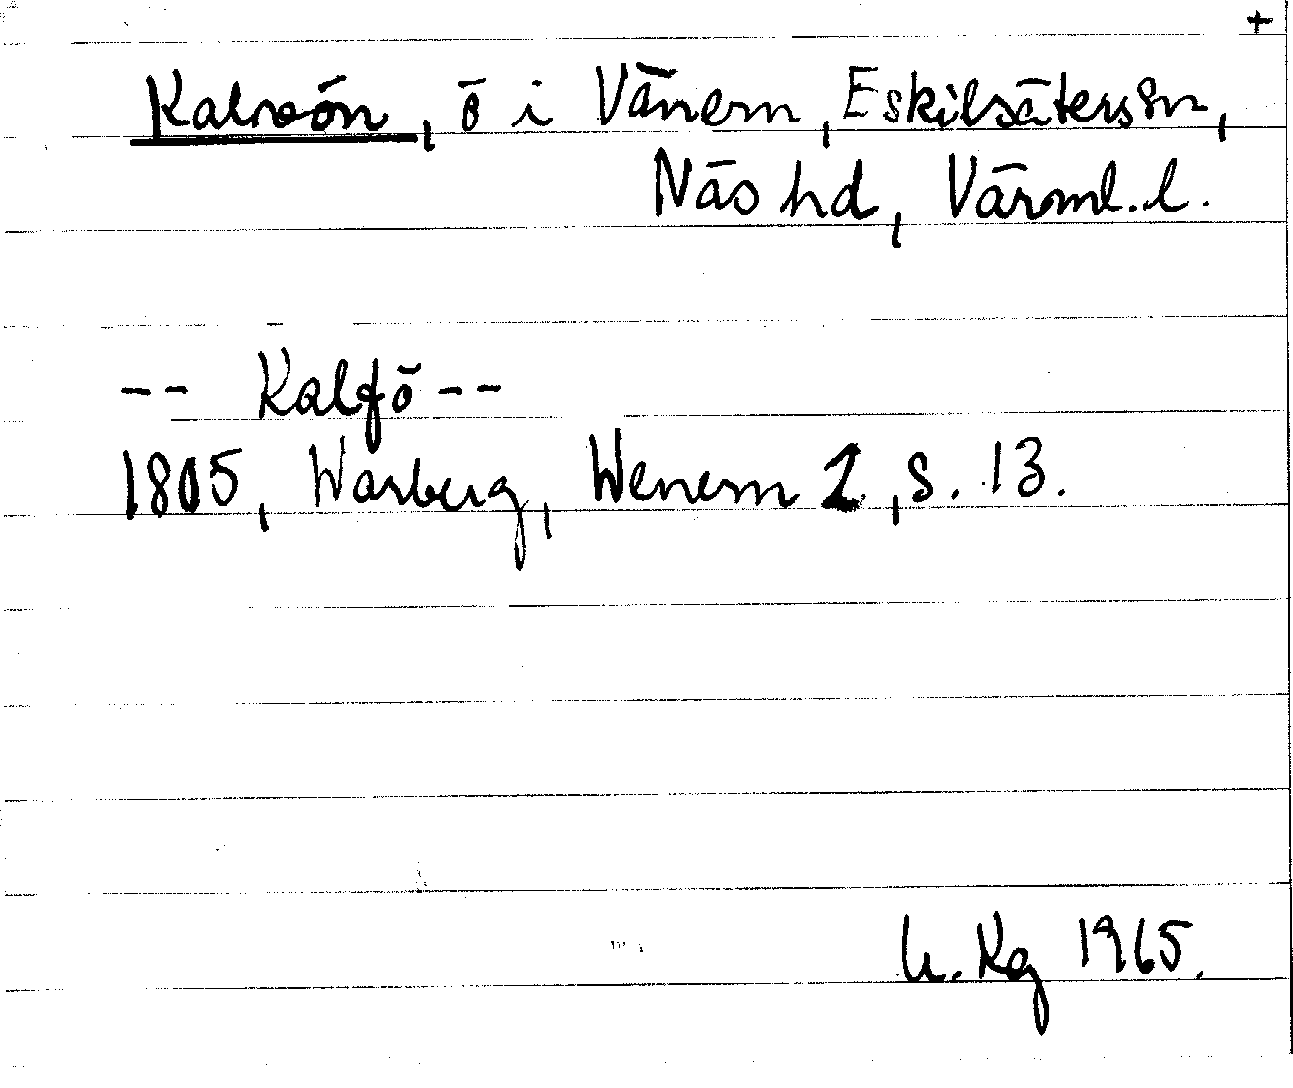 +
Kalvön, ö i Vänern, Eskilsäters sn,
Näs hd, Värml. l.
-- Kalfö --
1805, Warberg, Wenern 2, s. 13.
U. Kg 1965.